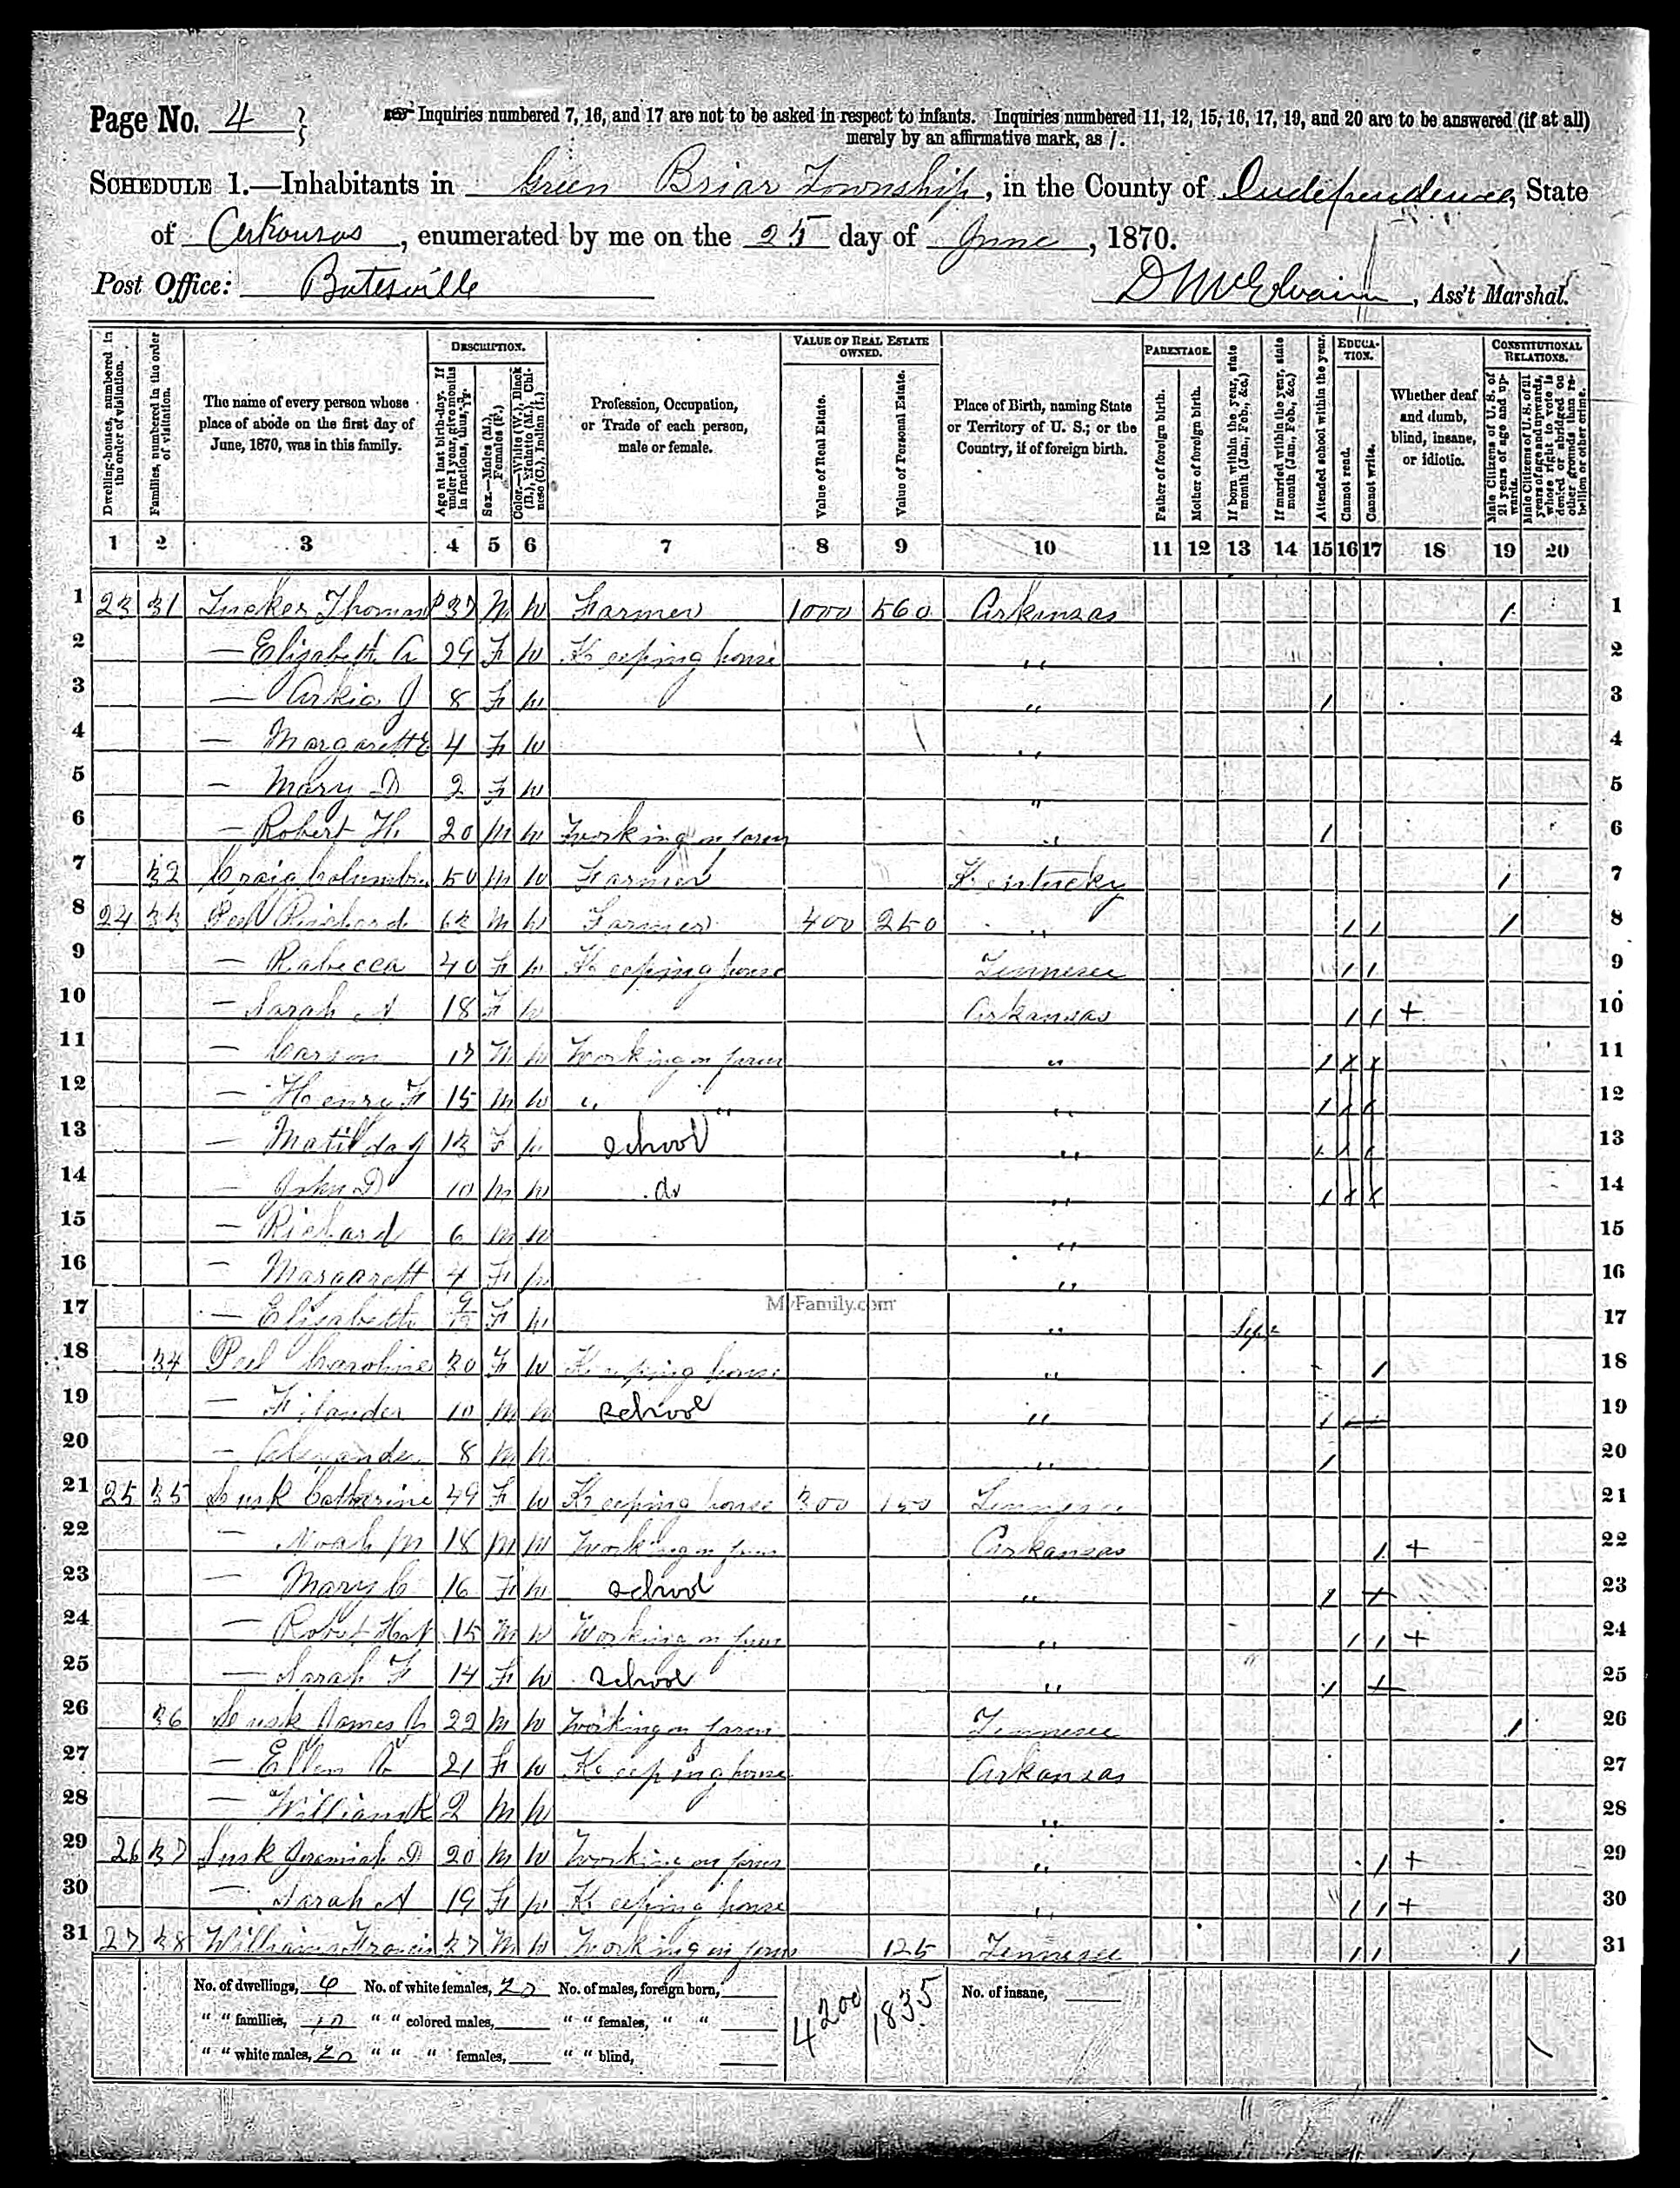 Page No. 4
Inquiries numbered 7, 16, and 17 are not to be asked in respect to infants. Inquiries numbered 11, 12, 15, 16, 17, 19, and 20 are to be answered (if at all)
merely by an affirmative mark, as /.
SCHEDULE 1.—Inhabitants in Green Briar Township, in the County of Independence, State
of Arkansas, enumerated by me on the 25 day of June, 1870.
Post Office: Batesville D McElvain, Ass't Marshal.
Dwelling-houses, numbered in the order of visitation.
Families, numbered in the order of visitation.
The name of every person whose place of abode on the first day of June, 1870, was in this family.
DESCRIPTION.
Age at last birth-day. If under 1 year, give months in fractions, thus, 3/12.
Sex.—Males (M.), Females (F.)
Color.—White (W.), Black (B.), Mulatto (M.), Chinese (C.), Indian (I.)
Profession, Occupation, or Trade of each person, male or female.
VALUE OF REAL ESTATE OWNED.
Value of Real Estate.
Value of Personal Estate.
Place of Birth, naming State or Territory of U. S.; or the Country, if of foreign birth.
PARENTAGE.
Father of foreign birth.
Mother of foreign birth.
If born within the year, state month (Jan., Feb., &c.)
If married within the year, state month (Jan., Feb., &c.)
Attended school within the year.
EDUCATION.
Cannot read.
Cannot write.
Whether deaf and dumb, blind, insane, or idiotic.
CONSTITUTIONAL RELATIONS.
Male Citizens of U. S. of 21 years of age and upwards.
Male Citizens of U. S. of 21 years of age and upwards, whose right to vote is denied or abridged on other grounds than rebellion or other crime.
1 2 3 4 5 6 7 8 9 10 11 12 13 14 15 16 17 18 19 20
1 23 31 Tucker Thomas P 37 M W Farmer 1000 560 Arkansas / 1
2 — Elizabeth A 29 F W Keeping house " 2
3 — Arkia J 8 F W " / 3
4 — Margarett E 4 F W " 4
5 — Mary D 2 F W " 5
6 — Robert H. 20 M W Working on farm " / 6
7 32 Craig Columbus 50 M W Farmer Kentucky / 7
8 24 33 Peel Richard 62 M W Farmer 400 250 " / / / 8
9 — Rabecca 40 F W Keeping house Tennesee / / 9
10 — Sarah A 18 F W Arkansas / / + 10
11 — Carson 17 M W Working on farm " / / / 11
12 — Henry F 15 M W " " " / / / 12
13 — Matilda J 13 F W school " / / / 13
14 — John D 10 M W do " / / / 14
15 — Richard 6 M W " 15
16 — Margarett 4 F W " 16
17 — Elizabeth 9/12 F W " Sept 17
MyFamily.com
18 34 Peel Caroline 30 F W Keeping house " / 18
19 — Filander 10 M W school " / 19
20 — Alexander 8 M W " / 20
21 25 35 Lusk Catherine 49 F W Keeping house 300 150 Tennesee 21
22 — Noah M 18 M W Working on farm Arkansas / + 22
23 — Mary C 16 F W school " / 23
24 — Robert 15 M W Working on farm " / / + 24
25 — Sarah F 14 F W school " / 25
26 36 Lusk James 22 M W Working on farm Tennesee / 26
27 — Ellen 21 F W Keeping house Arkansas 27
28 — William R 2 M W " 28
29 26 37 Lusk Jeremiah D 20 M W Working on farm " / + 29
30 — Sarah A 19 F W Keeping house " / / + 30
31 27 38 Williams Francis 37 M W Working on farm 125 Tennesee / / / 31
No. of dwellings, No. of white females, No. of males, foreign born, 4200 1835 No. of insane,
" " families, " " colored males, " " females, " "
" " white males, " " " females, " " blind,